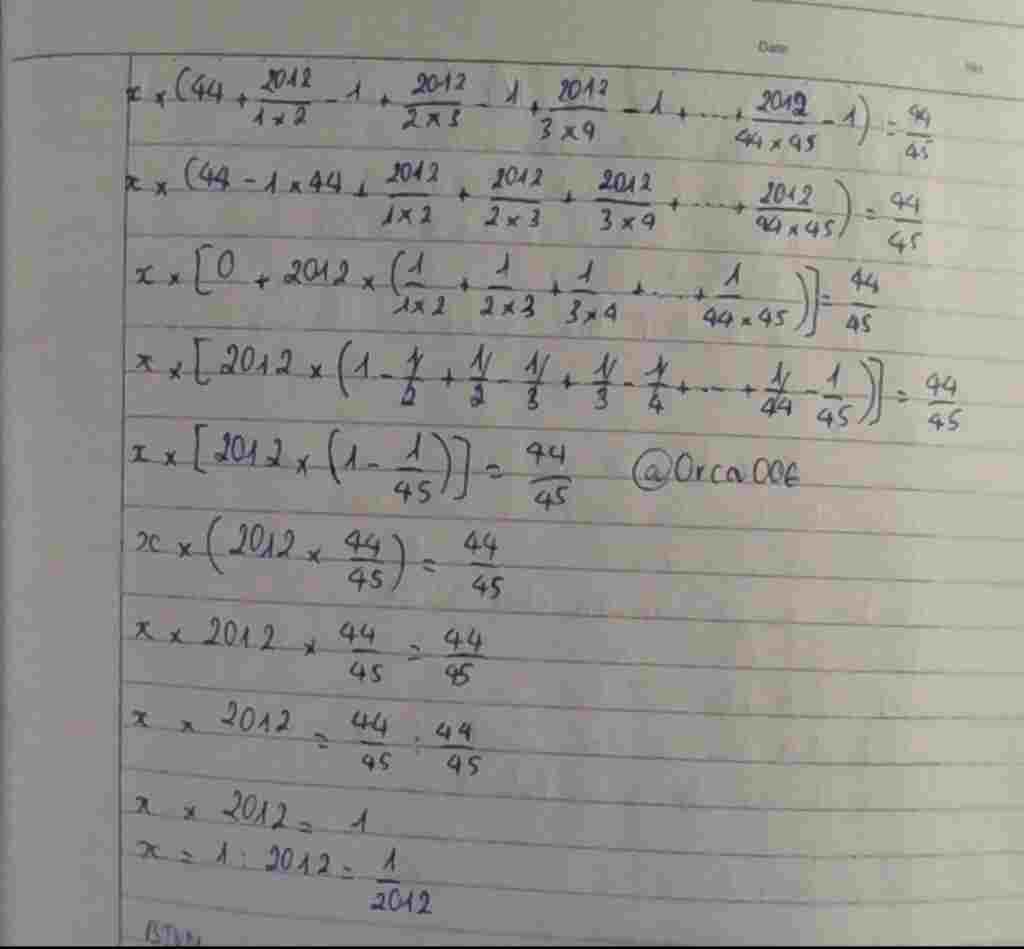 Date
No
x × (44 + 2012/1×2 - 1 + 2012/2×3 - 1 + 2012/3×4 - 1 + ... + 2012/44×45 - 1) = 44/45
x × (44 - 1×44 + 2012/1×2 + 2012/2×3 + 2012/3×4 + ... + 2012/44×45) = 44/45
x × [0 + 2012 × (1/1×2 + 1/2×3 + 1/3×4 + ... + 1/44×45)] = 44/45
x × [2012 × (1 - 1/2 + 1/2 - 1/3 + 1/3 - 1/4 + ... + 1/44 - 1/45)] = 44/45
x × [2012 × (1 - 1/45)] = 44/45 @Orca006
x × (2012 × 44/45) = 44/45
x × 2012 × 44/45 = 44/45
x × 2012 = 44/45 : 44/45
x × 2012 = 1
x = 1 : 2012 = 1/2012